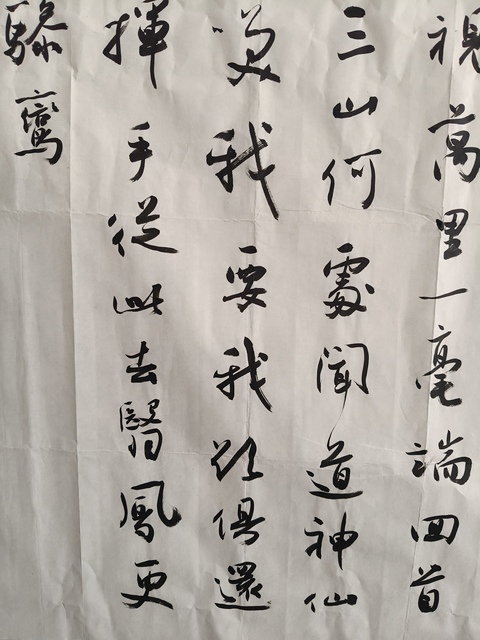 視萬里一毫端回首
三山何處聞道神仙
笑我要我欲俱還
揮手從此去翳鳳更
驂鸞